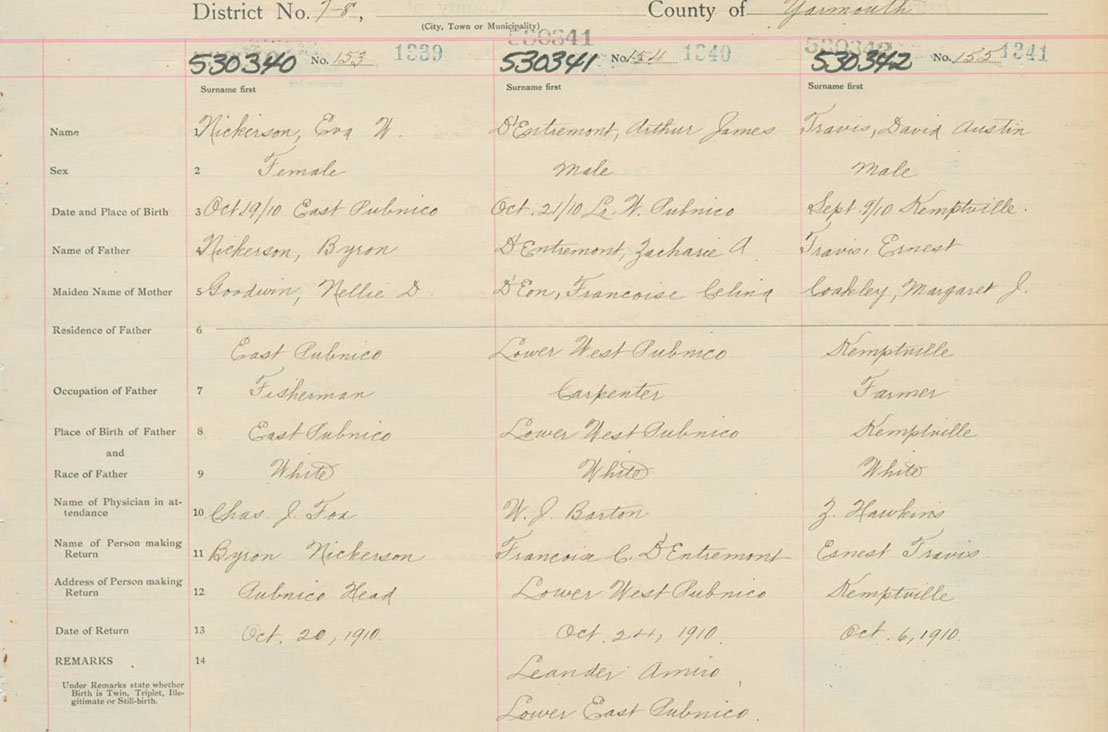 District No. 7-8, County of Yarmouth
(City, Town or Municipality)
530341
530340 No. 153 1339 530341 No. 154 1340 530342 No. 155 1341
Surname first Surname first Surname first
Name 1 Nickerson, Eva W. D'Entremont, Arthur James Travis, David Austin
Sex 2 Female Male Male
Date and Place of Birth 3 Oct 19/10 East Pubnico Oct. 21/10 Lr. W. Pubnico Sept 9/10 Kemptville.
Name of Father Nickerson, Byron D'Entremont, Zacharie A Travis, Ernest
Maiden Name of Mother 5 Goodwin, Nellie D. D'Eon, Francoise Celina Coakley, Margaret J.
Residence of Father 6
East Pubnico Lower West Pubnico Kemptville
Occupation of Father 7 Fisherman Carpenter Farmer
Place of Birth of Father 8 East Pubnico Lower West Pubnico Kemptville
and
Race of Father 9 White White White
Name of Physician in at-
tendance 10 Chas. J. Fox W. J. Barton Z. Hawkins
Name of Person making
Return 11 Byron Nickerson Francoix C. D'Entremont Ernest Travis.
Address of Person making
Return 12 Pubnico Head Lower West Pubnico Kemptville
Date of Return 13 Oct. 20, 1910. Oct. 24, 1910. Oct. 6, 1910.
REMARKS 14 Leander Amiro,
Under Remarks state whether
Birth is Twin, Triplet, Ille-
gitimate or Still-birth.
Lower East Pubnico.